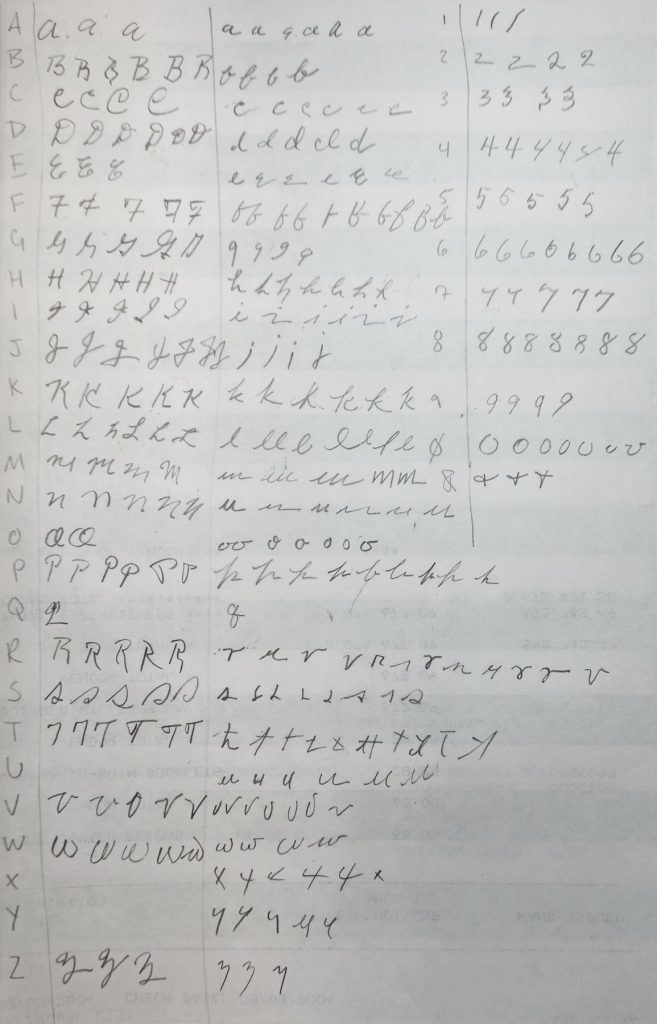 A a. a. a a a a a a a 1 1 1 1
B B B B B B B b b b b 2 2 2 2 2
C C C C C c c c c c c 3 3 3 3 3
D D D D D D D d d d d d 4 4 4 4 4 4 4
E E E E e e e e e e
F F F F F F f f f f f f f f f f 5 5 5 5 5 5
G G G G G G g g g g 6 6 6 6 0 6 6 6 6
H H H H H H h h h h h h h 7 7 7 7 7 7
I I I I I I i i i i i i
J J J J J J J j j j j 8 8 8 8 8 8 8 8
K K K K K K k k k k k k 9 9 9 9 9
L L L L L L l l l l l l l Ø 0 0 0 0 0 0 0
M m m m m m m m m m & + + +
N n n n n n n n n n n n
O O O o o o o o o o
P P P P P P P p p p p p p p p p
Q Q q
R R R R R R r r r r r r r r r r r r
S S S S S S s s s s s s s s
T T T T T T T t t t t t t t t t t
U u u u u u u
V v v v v v v v v v v v
W w w w w w w w w w
X x x x x x x
Y y y y y y
Z z z z z z z